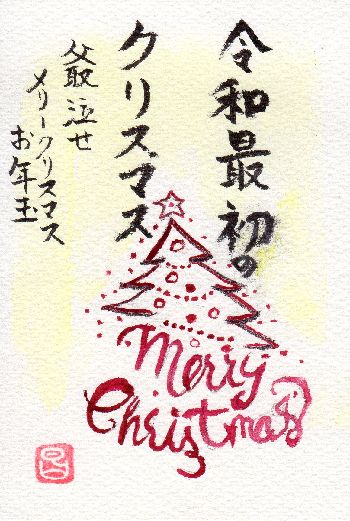 令和最初の
クリスマス
爺泣せ
メリークリスマス
お年玉
Merry
Christmas